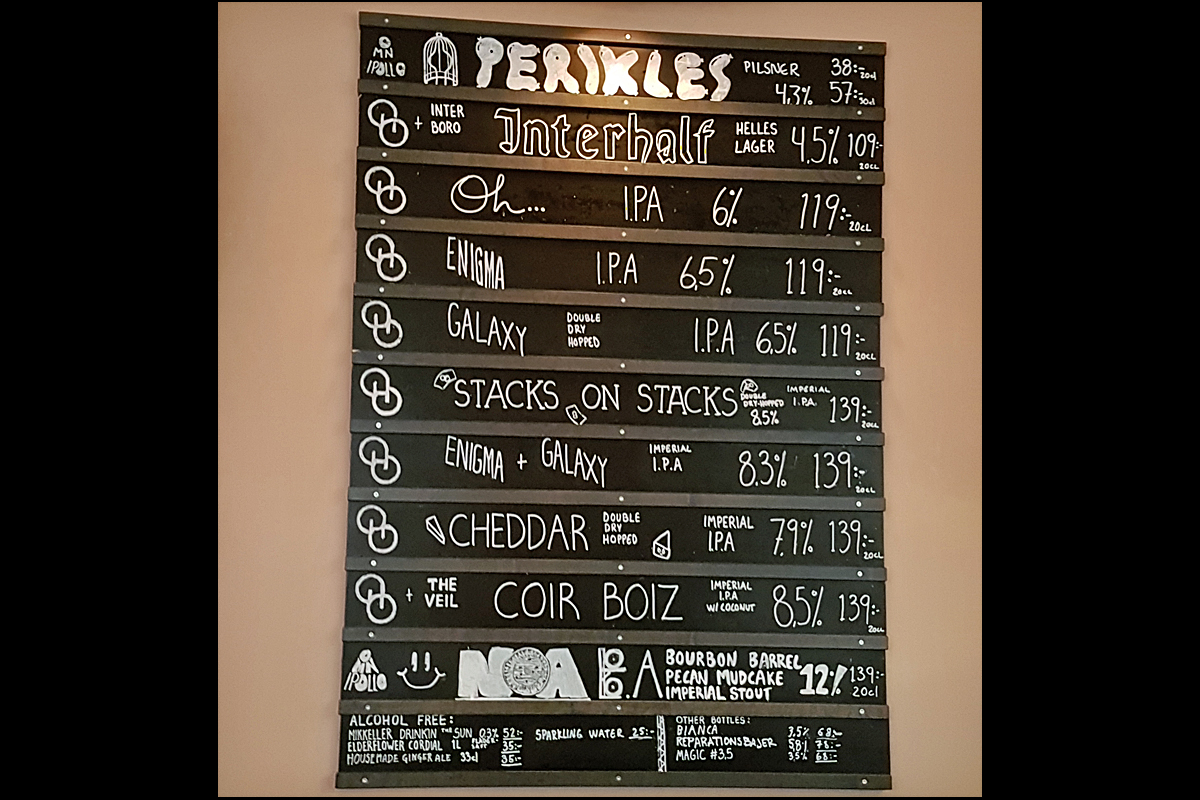 OMN IPOLLO PERIKLES PILSNER 4,3% 38:- 20cl 57:- 30cl
+ INTER BORO Interhalf HELLES LAGER 4,5% 109:- 20CL
Oh... I.P.A 6% 119:- 20CL
ENIGMA I.P.A 6,5% 119:- 20CL
GALAXY DOUBLE DRY HOPPED I.P.A 6,5% 119:- 20CL
STACKS ON STACKS DOUBLE DRY-HOPPED 8,5% IMPERIAL I.P.A. 139:- 20CL
ENIGMA + GALAXY IMPERIAL I.P.A 8,3% 139:- 20CL
CHEDDAR DOUBLE DRY HOPPED IMPERIAL I.P.A 7,9% 139:- 20CL
+ THE VEIL COIR BOIZ IMPERIAL I.P.A W/COCONUT 8,5% 139:- 20CL
OMNIPOLLO NOA B.B.A BOURBON BARREL PECAN MUDCAKE IMPERIAL STOUT 12% 139:- 20cl
ALCOHOL FREE:
MIKKELER DRINKIN THE SUN 0,3% 52:-
ELDERFLOWER CORDIAL 1L 35:-
HOUSEMADE GINGER ALE 33cl 35:-
SPARKLING WATER 25:-
OTHER BOTTLES:
BIANCA 3,5% 68:-
REPARATIONSBAJER 5,8% 78:-
MAGIC #3,5 3,5% 68:-